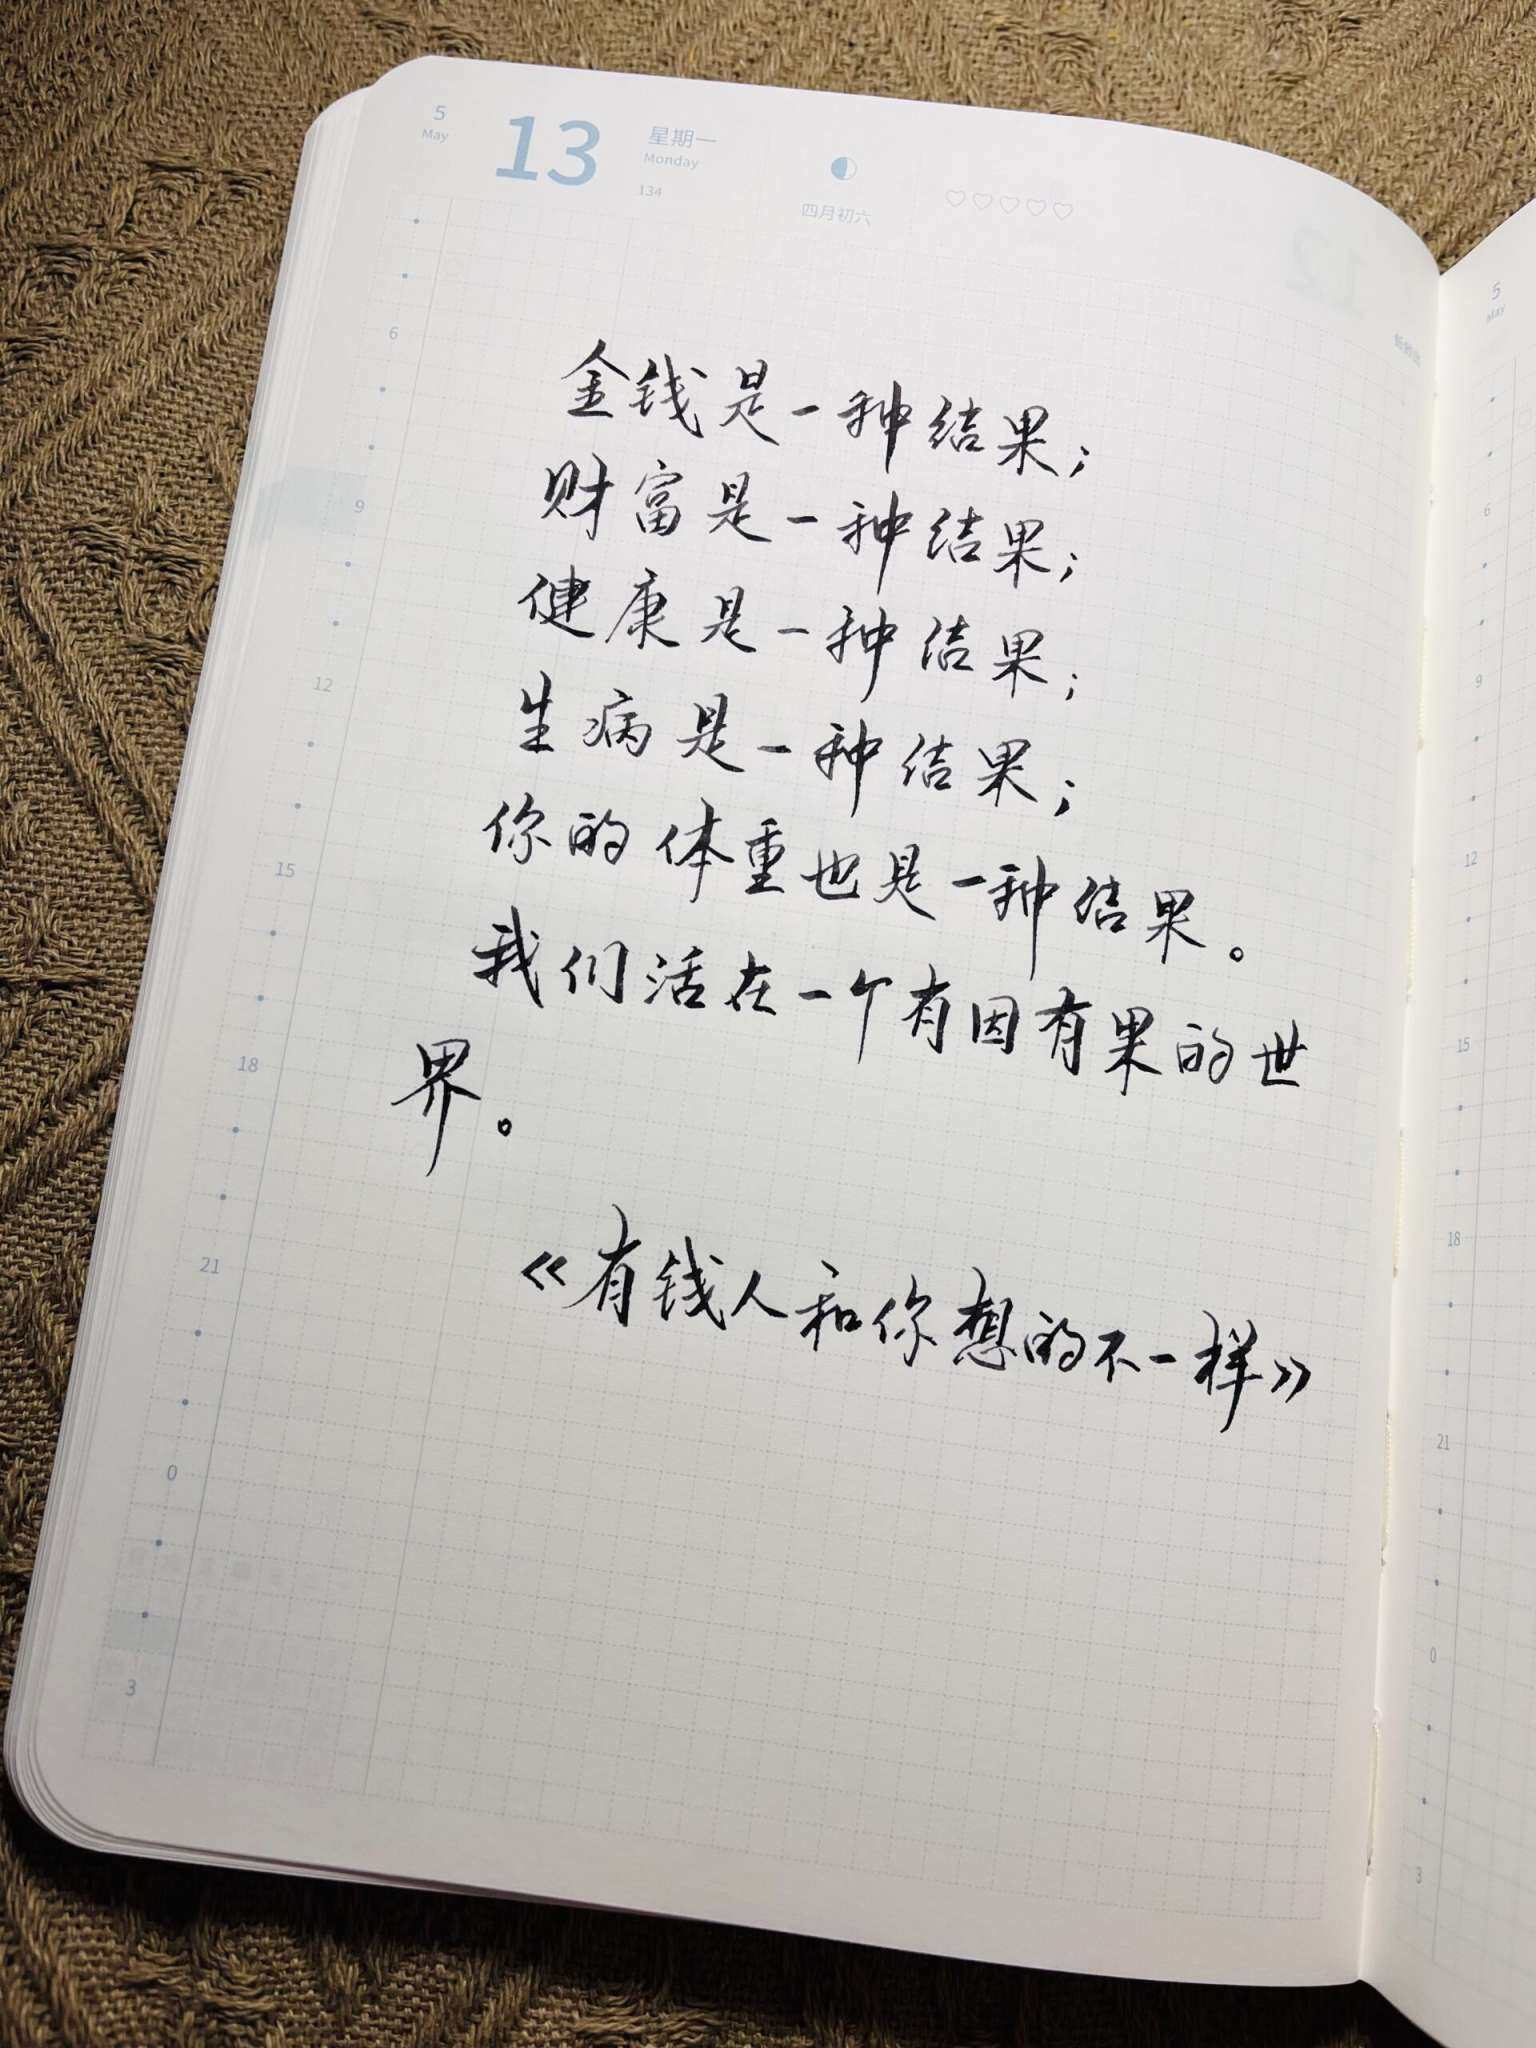 5
May
13
星期一
Monday
134
四月初六
金钱是一种结果；
财富是一种结果；
健康是一种结果；
生病是一种结果；
你的体重也是一种结果。
我们活在一个有因有果的世
界。
《有钱人和你想的不一样》
6
9
12
15
18
21
0
3
5
May
6
9
12
15
18
21
0
3